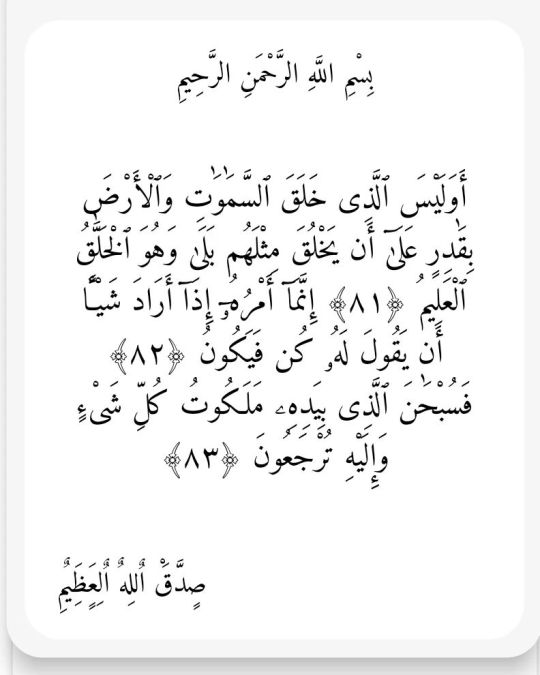 بِسْمِ اللَّهِ الرَّحْمَنِ الرَّحِيمِ
أَوَلَيْسَ ٱلَّذِى خَلَقَ ٱلسَّمَٰوَٰتِ وَٱلْأَرْضَ
بِقَٰدِرٍ عَلَىٰٓ أَن يَخْلُقَ مِثْلَهُم بَلَىٰ وَهُوَ ٱلْخَلَّٰقُ
ٱلْعَلِيمُ ﴿٨١﴾ إِنَّمَآ أَمْرُهُۥٓ إِذَآ أَرَادَ شَيْـًٔا
أَن يَقُولَ لَهُۥ كُن فَيَكُونُ ﴿٨٢﴾
فَسُبْحَٰنَ ٱلَّذِى بِيَدِهِۦ مَلَكُوتُ كُلِّ شَىْءٍ
وَإِلَيْهِ تُرْجَعُونَ ﴿٨٣﴾
صٍدَّقَْ اٌللِهٌ اٌلِعٍَظَِيمِ